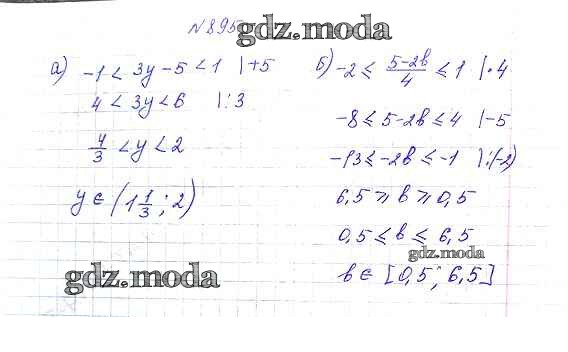 №895
gdz.moda
а) -1 < 3y - 5 < 1 | +5
4 < 3y < 6 | :3
4/3 < y < 2
y ∈ (1 1/3 ; 2)
gdz.moda
б) -2 ≤ (5-2b)/4 ≤ 1 | ·4
-8 ≤ 5-2b ≤ 4 | -5
-13 ≤ -2b ≤ -1 | :(-2)
6,5 ⩾ b ⩾ 0,5
0,5 ≤ b ≤ 6,5
gdz.moda
b ∈ [0,5 ; 6,5]